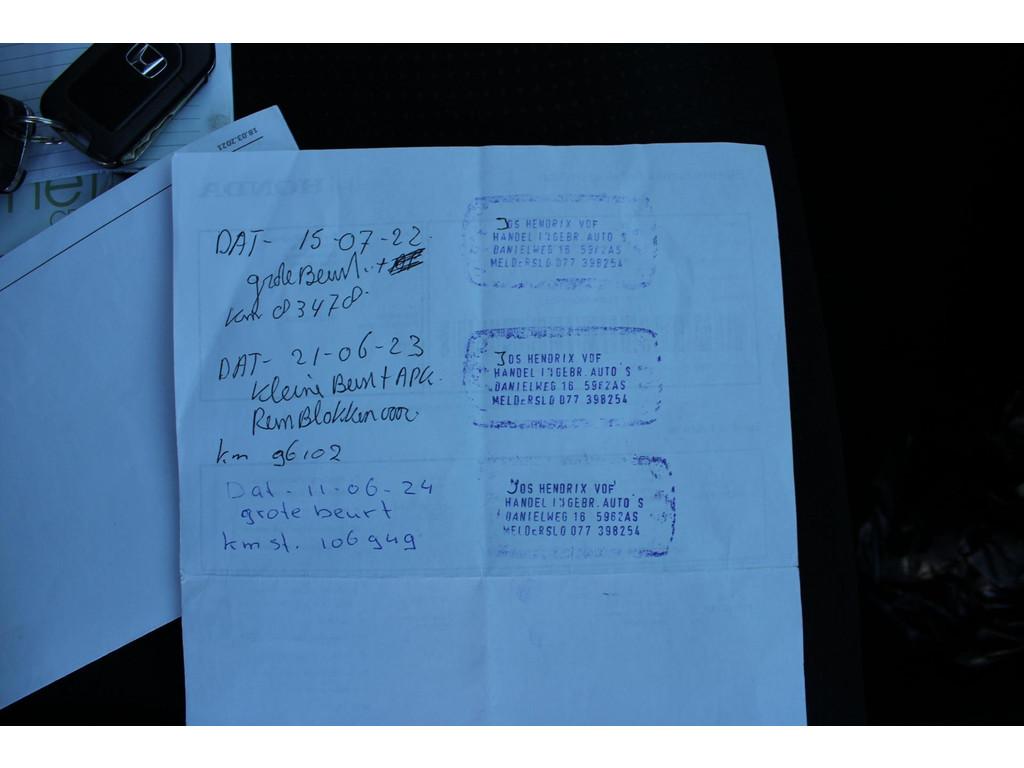 18.03.2021
HONDA
DAT- 15-07-22
grote Beurt. +
km 83478.
JOS HENDRIX VOF
HANDEL IN GEBR. AUTO'S
DANIELWEG 16 5962AS
MELDERSLO 077 398254
DAT- 21-06-23
kleine Beurt + APK.
Rem Blokken voor
km 96102
JOS HENDRIX VOF
HANDEL IN GEBR. AUTO'S
DANIELWEG 16 5962AS
MELDERSLO 077 398254
Dat - 11-06-24
grote beurt
km st. 106949
JOS HENDRIX VOF
HANDEL IN GEBR. AUTO'S
DANIELWEG 16 5962AS
MELDERSLO 077 398254